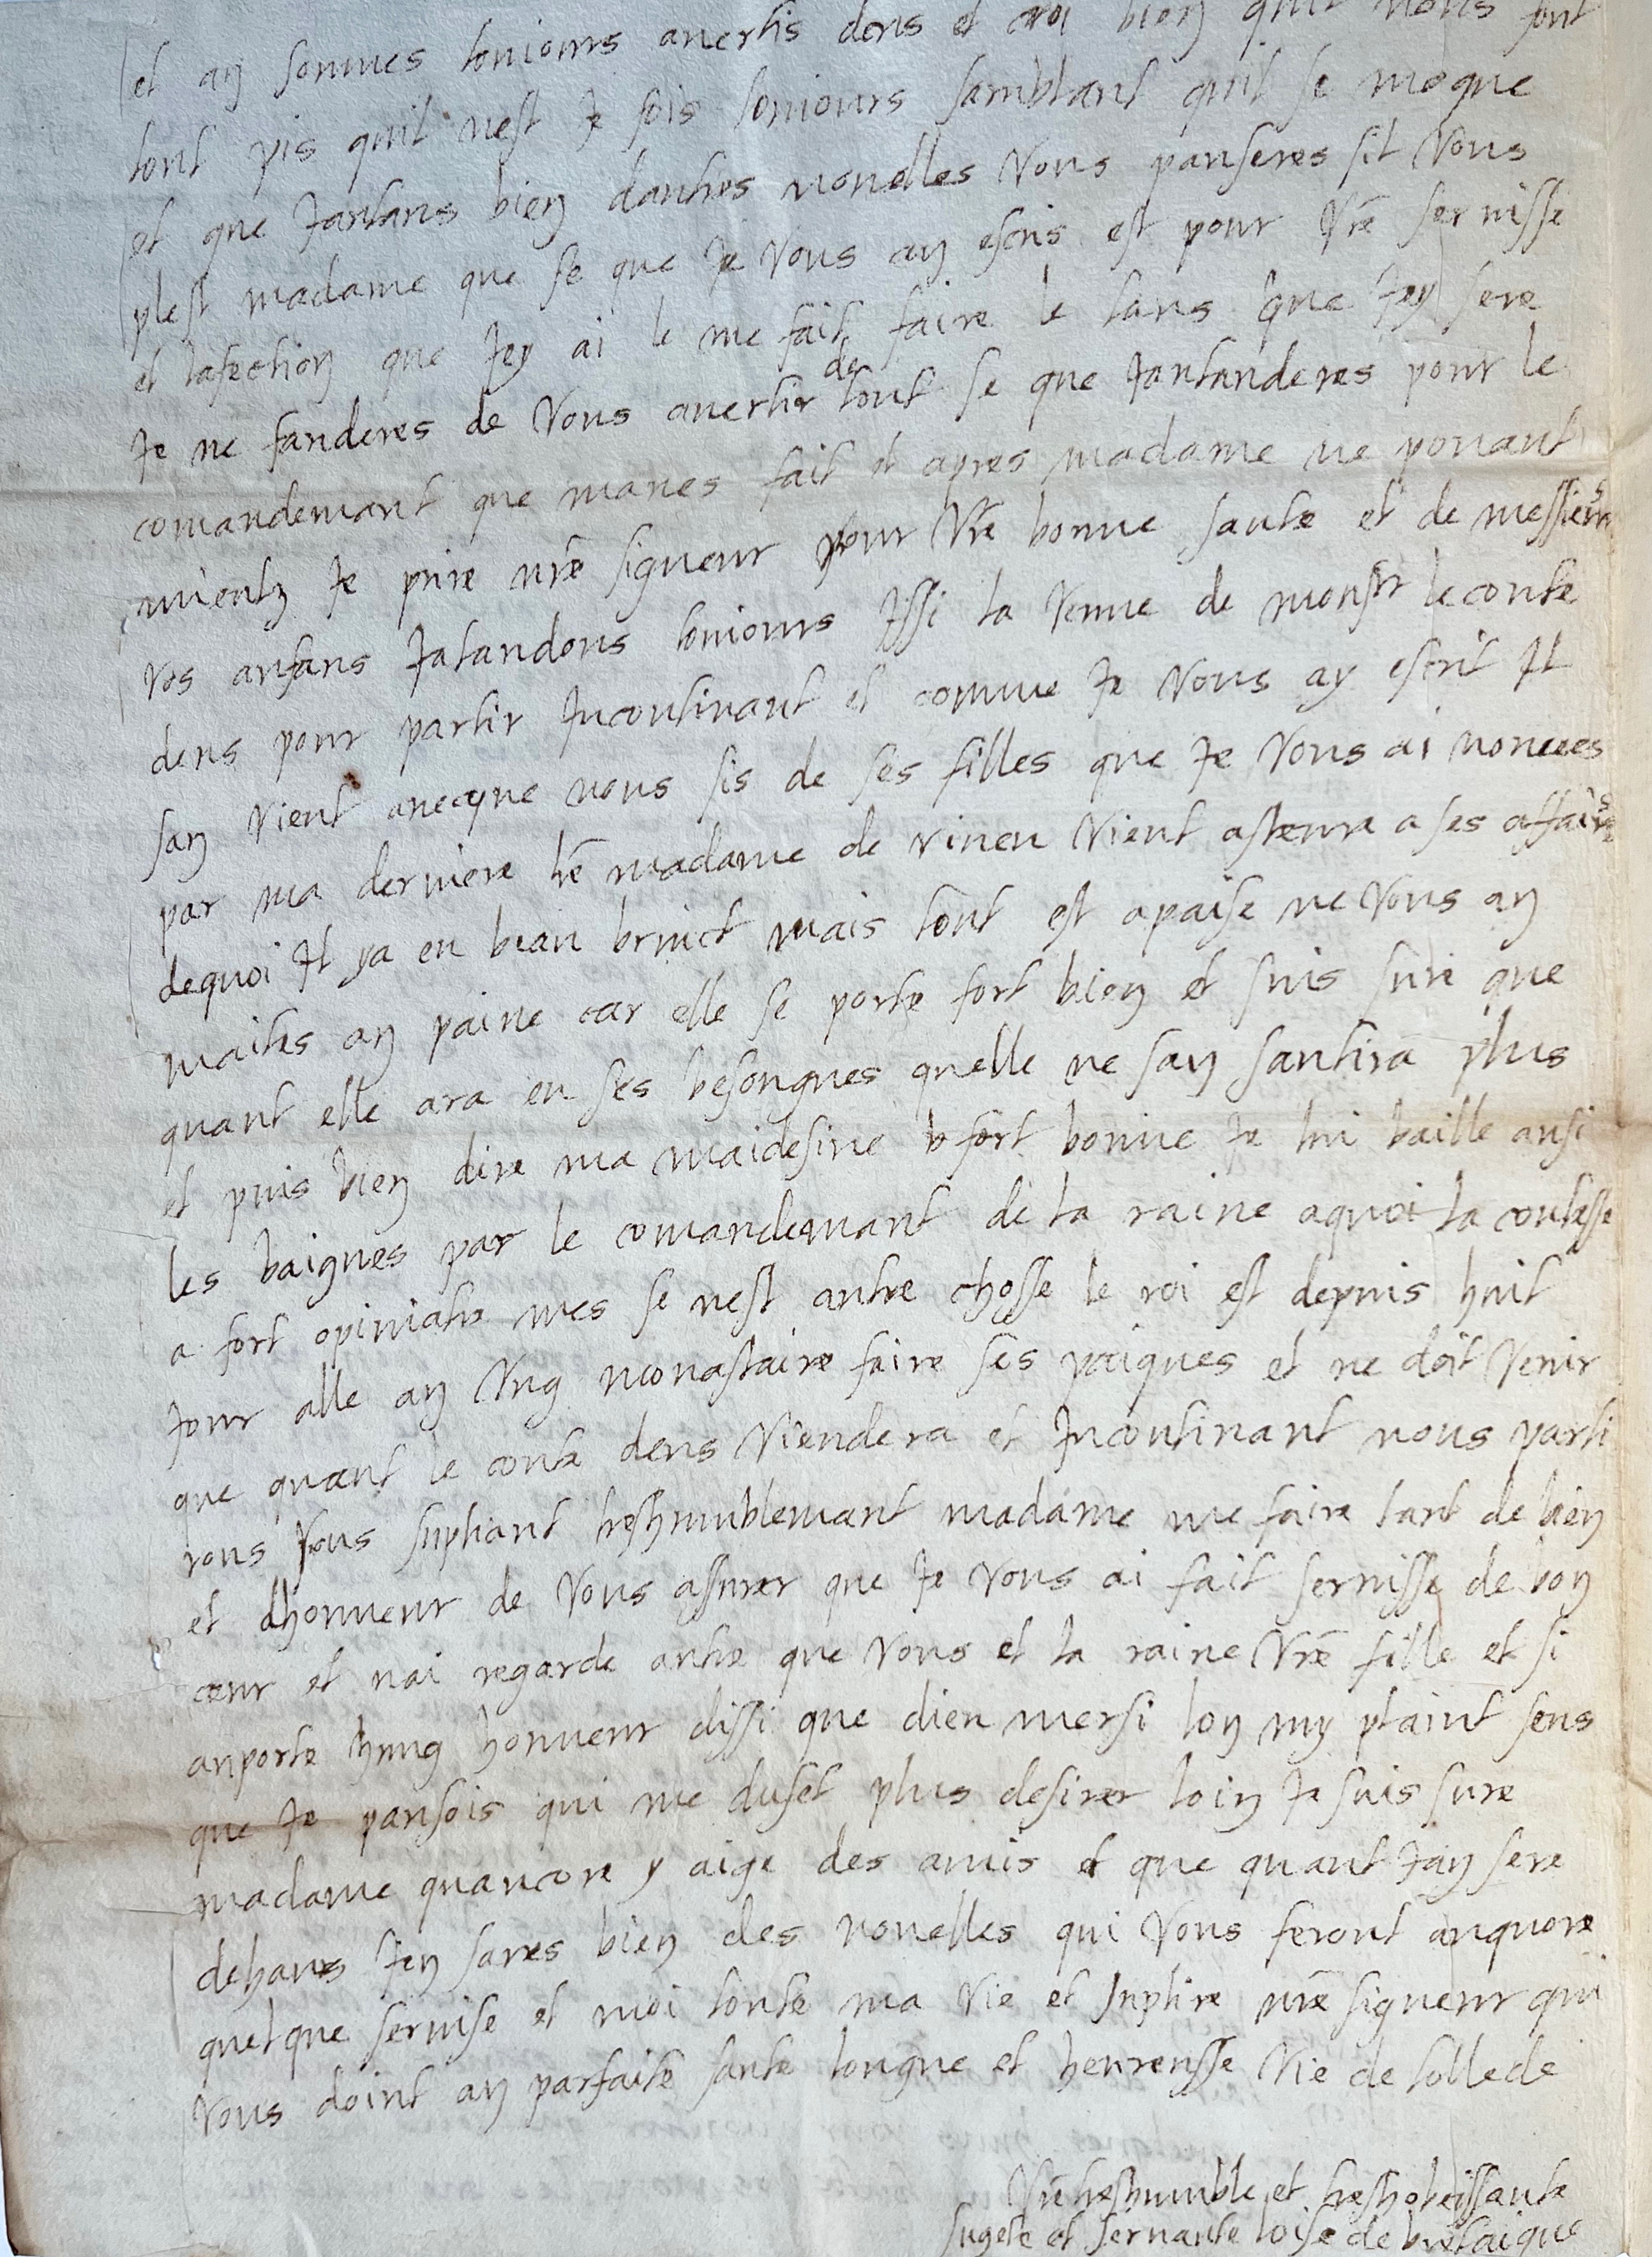 et an sommes touiours avertis dens et croi bien quil nous font
tout pis quil nest Je fois touiours samblant quil se moque
et que Jantans bien dautres nouelles Vous panseres sil Vous
plest madame que se que Je Vous an escris est pour Vre seruisse
et lafection que Jey ai le me fait faire le tans que Jey sere
Je ne fauderes de Vous auertir de tout se que Jantanderes pour le
comandemant que maues fait et apres madame ne pouant
mientz Je prire nre signeur pour Vre bonne sante et de messieurs
Vos anfans Jatandons touiours Issi la Venue de monsr le conte
dens pour partir Incontinant et comme Je Vous ay escrit Il
san Vient auecque nous sis de ses filles que Je Vous ai nomees
par ma derniere lre madame de Vineu Vient asteura a ses affaires
dequoi Il ya eu beau bruict mais tout est apaise ne Vous an
maites an paine car elle se porte fort bien et suis sure que
quant elle ara eu ses besongnes quelle ne san santira plus
et puis bien dire ma maidesine fort bonne Je lui baille ausi
les baignes par le comandemant de la raine aquoi la contesse
a fort opiniatre mes se nest autre chosse le roi est depuis huit
Jour alle an Ung monastaire faire ses paiques et ne doit Venir
que quant le conte dens Viendera et Incontinant nous parti
rons Vous supliant treshumblemant madame me faire tant de bien
et dhonneur de Vous asurer que Je Vous ai fait seruisse de bon
ceur et nai regarde autre que Vous et la raine Vre fille et si
anporte hung honneur dissi que dieu mersi lon my plaint sens
que Je pansois qui me duset plus desirer loin Je suis sure
madame quancore y aige des amis et que quant Jan sere
dehaus Jen sares bien des nouelles qui Vous feront anquore
quelque seruise et moi toute ma Vie et suplire nre signeur qui
Vous doint an parfaite sante longue et heureusse Vie de tollede
Vre treshumble et treshobeissante
sugete et seruante loise de bretaigne